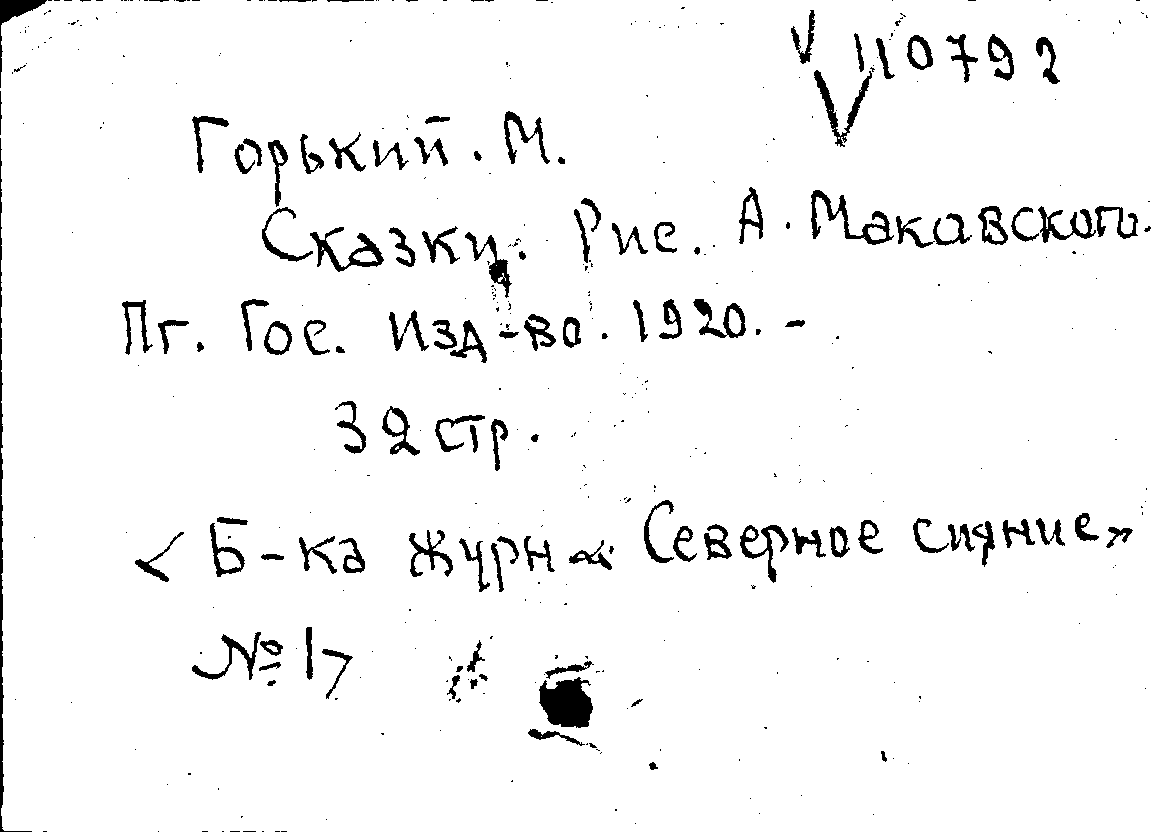 V 110792
Горький. М.
Сказки. Рис. А. Макавского.
Пг. Гос. Изд-во. 1920. -
32 стр.
< Б-ка журн « Северное сияние»
№ 17